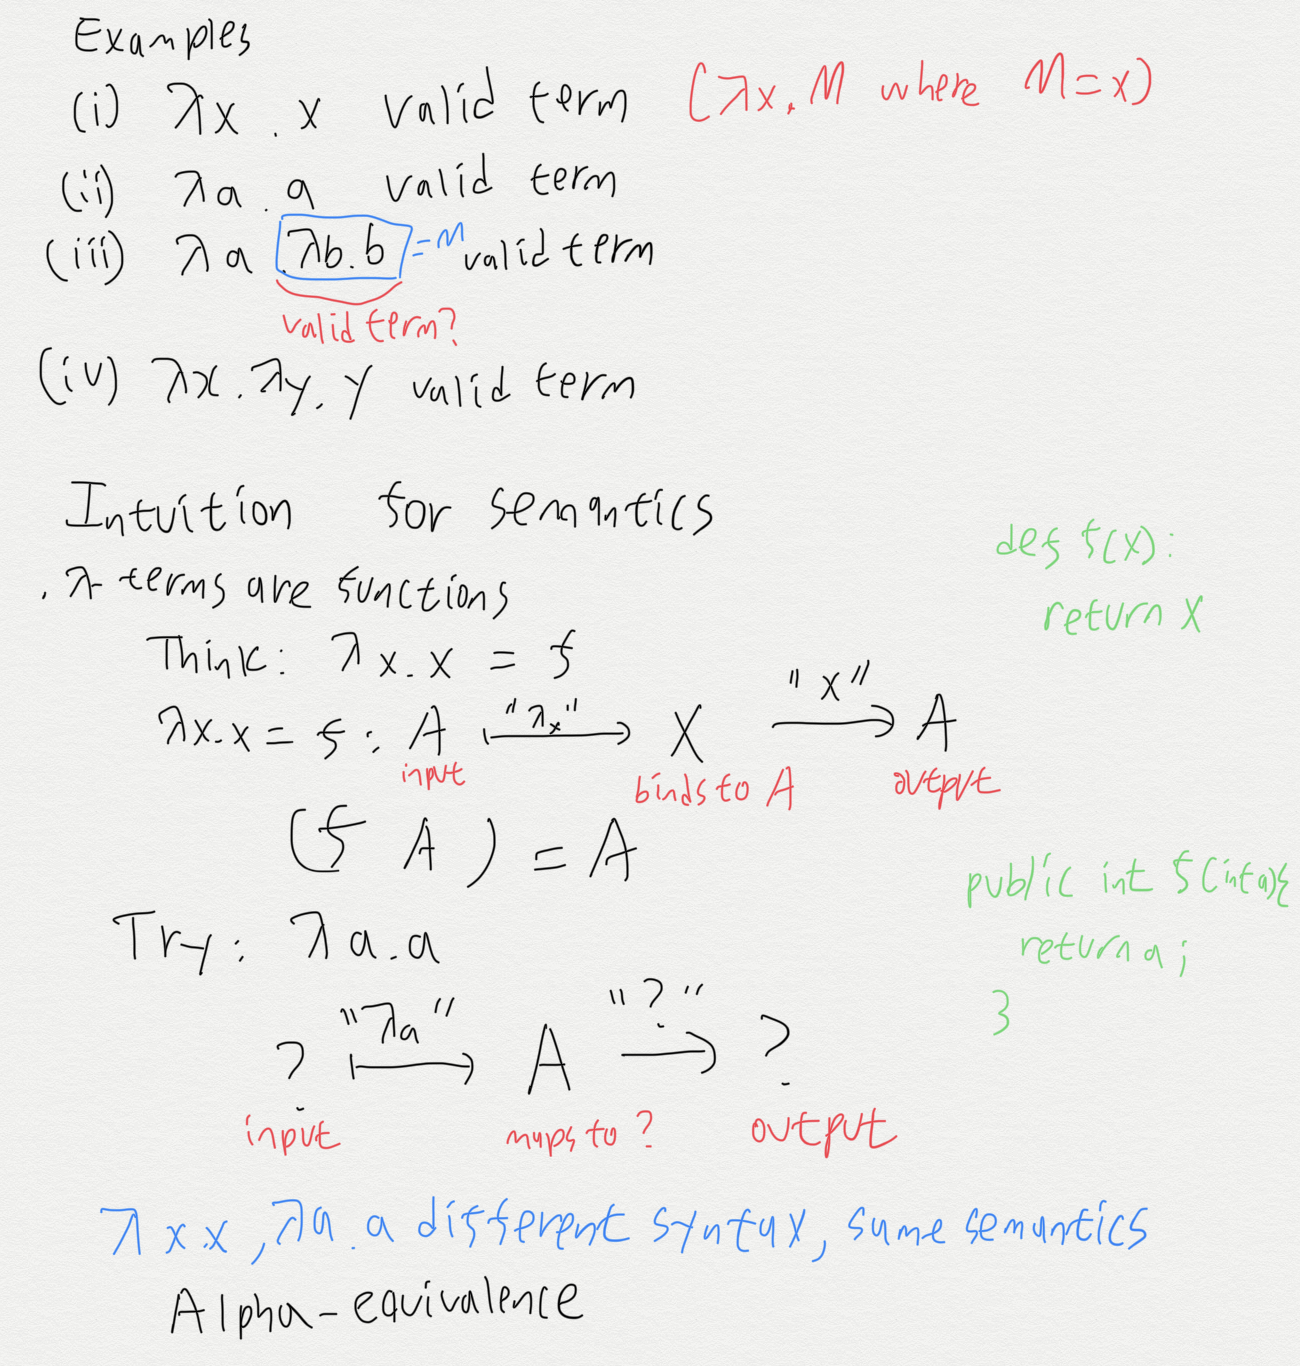 Examples
(i) λx . x valid term (λx. M where M = x)
(ii) λa . a valid term
(iii) λa .λb.b = M valid term
valid term?
(iv) λx . λy. y valid term
Intuition for semantics
. λ-terms are functions
Think: λx. x = f
def f(x):
return x
λx.x = f : A "λx" X "x" A
input binds to A output
(f A) = A
Try: λa.a
public int f(int a){
return a;
}
? "λa" A "?" ?
input maps to ? output
λx.x, λa.a different syntax, same semantics
Alpha-equivalence